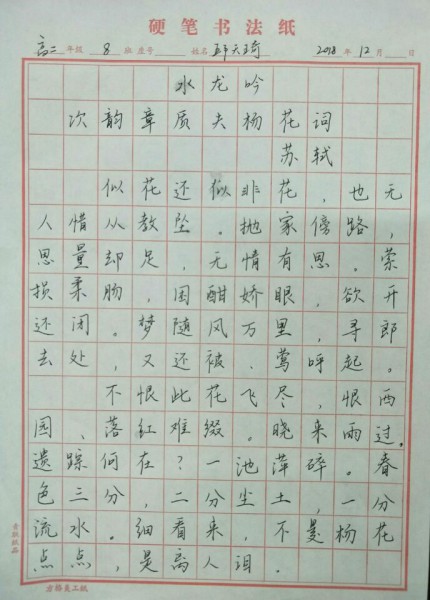 硬笔书法纸
高二年级 8 班 座号 姓名 天琦 2018 年 12 月 日
水龙吟
次韵章质夫杨花词
苏轼
似花还似非花，也无
人惜从教坠。抛家傍路，
思量却是，无情有思。萦
损柔肠，困酣娇眼，欲开
还闭。梦随风万里，寻郎
去处，又还被、莺呼起。
不恨此花飞尽，恨西
园、落红难缀。晓来雨过，
遗踪何在？一池萍碎。春
色三分，二分尘土，一分
流水。细看来，不是杨花
点点，是离人泪。
方格美工纸